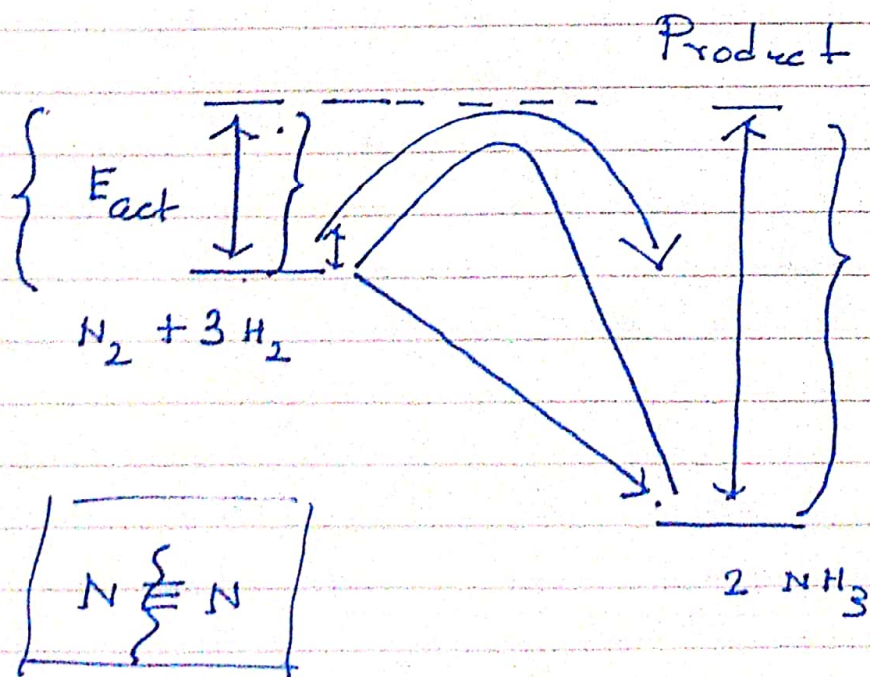 Product
E_act
N₂ + 3 H₂
N ≡ N
2 NH₃